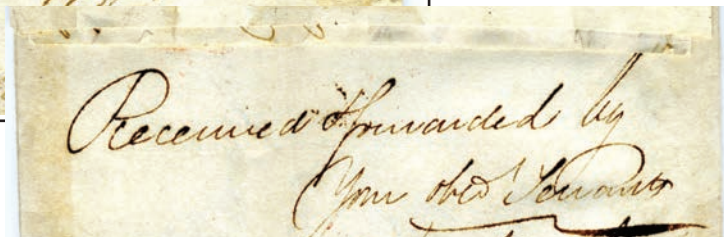 Received & forwarded by
Your obed Servants